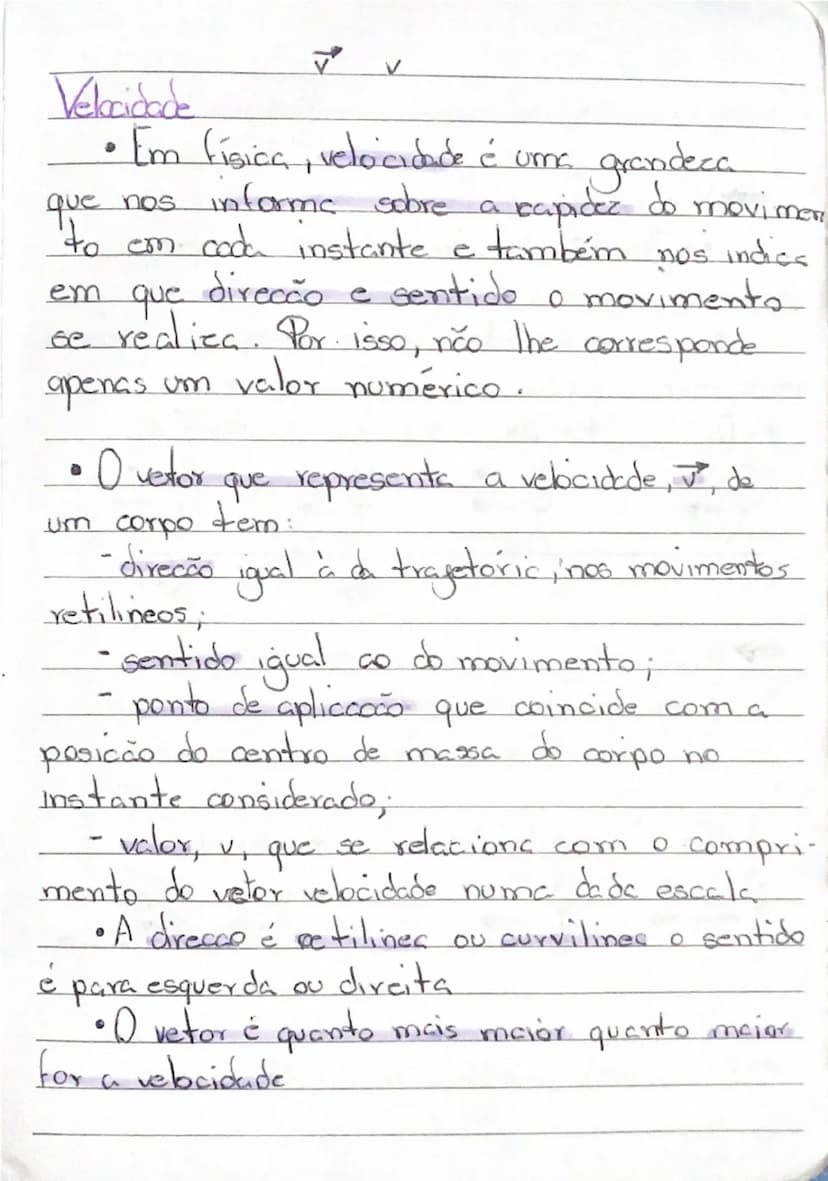 v⃗ v
Velocidade
• Em física, velocidade é uma grandeza
que nos informa sobre a rapidez do movimen
to em cada instante e também nos indica
em que direcção e sentido o movimento
se realiza. Por isso, não lhe corresponde
apenas um valor numérico.
• O vetor que representa a velocidade, v⃗, de
um corpo tem:
- direcão igual à da trajetória, nos movimentos
retilíneos;
- sentido igual ao do movimento;
- ponto de aplicacão que coincide com a
posicão do centro de massa do corpo no
instante considerado;
- valor, v, que se relaciona com o compri-
mento do vetor velocidade numa dada escala
• A direcao é retilinea ou curvilinea o sentido
é para esquerda ou direita
• O vetor é quanto mais maior quanto maior
for a velocidade